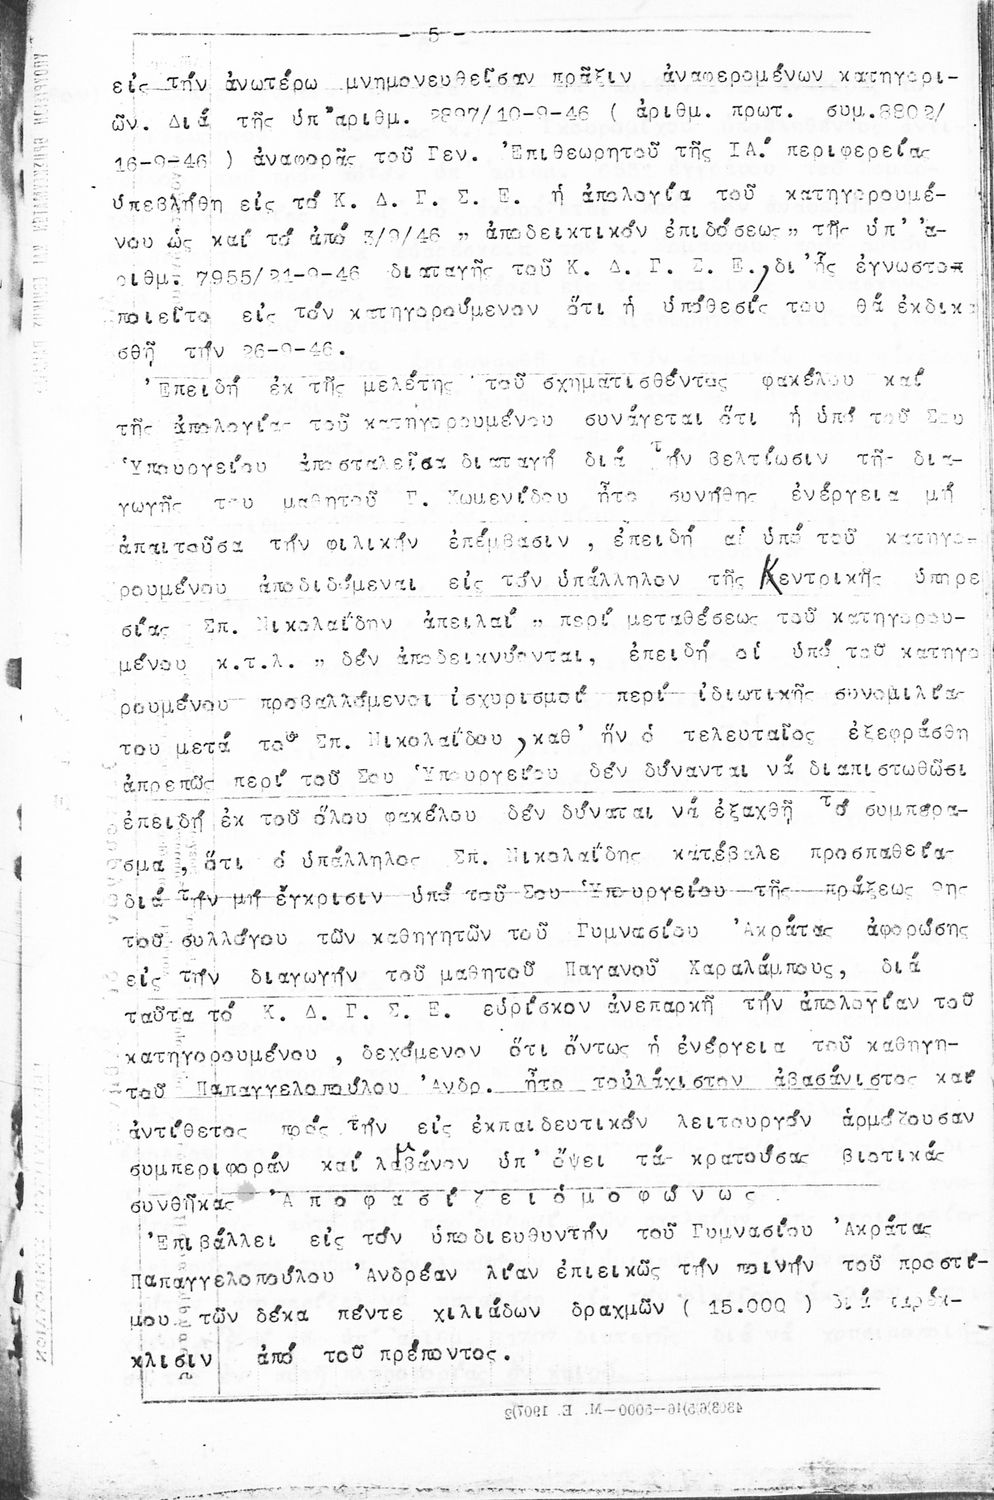 - 5 -
εἰς τήν ἀνωτέρω μνημονευθεῖσαν πρᾶξιν ἀναφερομένων κατηγορι-
ῶν. Διά τῆς ὑπ'αριθμ. 2897/10-9-46 ( ἀριθμ. πρωτ. συμ.8802/
16-9-46 ) ἀναφορᾶς τοῦ Γεν. Ἐπιθεωρητοῦ τῆς ΙΑ΄ περιφερείας
ὑπεβλήθη εἰς τό Κ. Δ. Γ. Σ. Ε. ἡ ἀπολογία τοῦ κατηγορουμέ-
νου ὡς καί τό ἀπό 3/9/46 „ ἀποδεικτικόν ἐπιδόσεως „ τῆς ὑπ' ἀ-
ριθμ. 7955/21-9-46 διαταγῆς τοῦ Κ. Δ. Γ. Σ. Ε., δι'ἧς ἐγνωστο-
ποιεῖτο εἰς τόν κατηγορούμενον ὅτι ἡ ὑπόθεσίς του θά ἐκδικα
σθῇ τήν 26-9-46.
Ἐπειδή ἐκ τῆς μελέτης τοῦ σχηματισθέντος φακέλου καί
τῆς ἀπολογίας τοῦ κατηγορουμένου συνάγεται ὅτι ἡ ὑπό τοῦ Σου
Ὑπουργείου ἀποσταλεῖσα διαταγή διά τήν βελτίωσιν τῆς δια-
γωγῆς του μαθητοῦ Γ. Χωμενίδου ἦτο συνήθης ἐνέργεια μή
ἀπαιτοῦσα τήν φιλικήν ἐπέμβασιν , ἐπειδή αἱ ὑπό τοῦ κατηγο-
ρουμένου ἀποδιδόμεναι εἰς τόν ὑπάλληλον τῆς Κεντρικῆς ὑπηρε
σίας Σπ. Νικολαΐδην ἀπειλαί „ περί μεταθέσεως τοῦ κατηγορου-
μένου κ.τ.λ. „ δέν ἀποδεικνύονται, ἐπειδή οἱ ὑπό τοῦ κατηγο
ρουμένου προβαλλόμενοι ἰσχυρισμοί περί ἰδιωτικῆς συνομιλίας
του μετά τοῦ Σπ. Νικολαΐδου , καθ' ἥν ὁ τελευταῖος ἐξεφράσθη
ἀπρεπῶς περί τοῦ Σου Ὑπουργείου δέν δύνανται νά διαπιστωθῶσι
ἐπειδή ἐκ τοῦ ὅλου φακέλου δέν δύναται νά ἐξαχθῇ τό συμπέρα-
σμα , ὅτι ὁ ὑπάλληλος Σπ. Νικολαΐδης κατέβαλε προσπαθείας
διά τήν μή ἔγκρισιν ὑπό τοῦ Σου Ὑπουργείου τῆς πράξεως 9ης
τοῦ συλλόγου τῶν καθηγητῶν τοῦ Γυμνασίου Ἀκράτας ἀφορώσης
εἰς τήν διαγωγήν τοῦ μαθητοῦ Παγανοῦ Χαραλάμπους, διά
ταῦτα τό Κ. Δ. Γ. Σ. Ε. εὑρίσκον ἀνεπαρκῆ τήν ἀπολογίαν τοῦ
κατηγορουμένου , δεχόμενον ὅτι ὄντως ἡ ἐνέργεια τοῦ καθηγη-
τοῦ Παπαγγελοπούλου Ἀνδρ. ἦτο τοὐλάχιστον ἀβασάνιστος καί
ἀντίθετος πρός τήν εἰς ἐκπαιδευτικόν λειτουργόν ἁρμόζουσαν
συμπεριφοράν καί λαμβάνον ὑπ' ὄψει τάς κρατούσας βιοτικάς
συνθήκας Ἀ π ο φ α σ ί ζ ε ι ὁ μ ο φ ώ ν ω ς .
Ἐπιβάλλει εἰς τόν ὑποδιευθυντήν τοῦ Γυμνασίου Ἀκράτας
Παπαγγελοπούλου Ἀνδρέαν λίαν ἐπιεικῶς τήν ποινήν τοῦ προστί-
μου τῶν δέκα πέντε χιλιάδων δραχμῶν ( 15.000 ) διά παρέκ-
κλισιν ἀπό τοῦ πρέποντος.